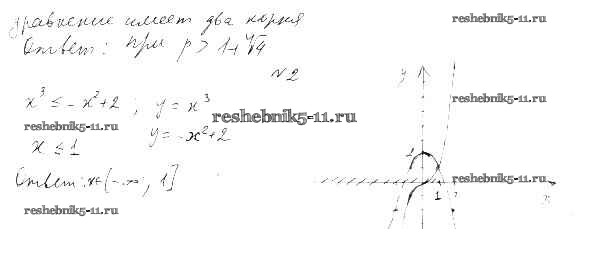 уравнение имеет два корня
Ответ: при p > 1+∜4
№2
x³ ≤ -x²+2 ; y = x³
y = -x²+2
x ≤ 1
Ответ: x∈(-∞; 1]
y
1
x
reshebnik5-11.ru
reshebnik5-11.ru
reshebnik5-11.ru
reshebnik5-11.ru
reshebnik5-11.ru
reshebnik5-11.ru